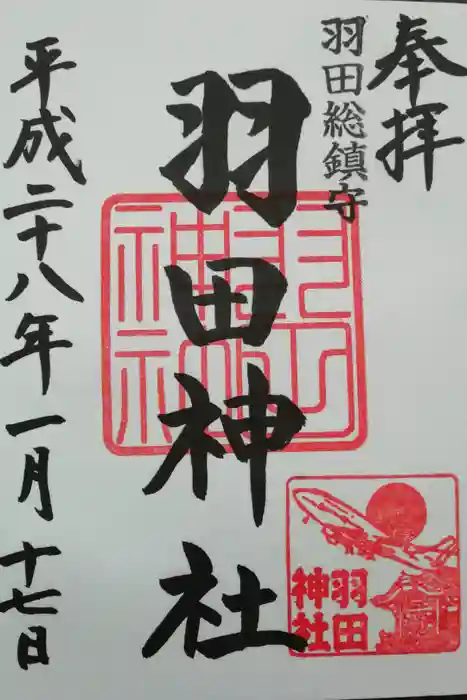 奉拝
羽田総鎮守
羽田神社
平成二十八年一月十七日
羽田神社
羽田
神社